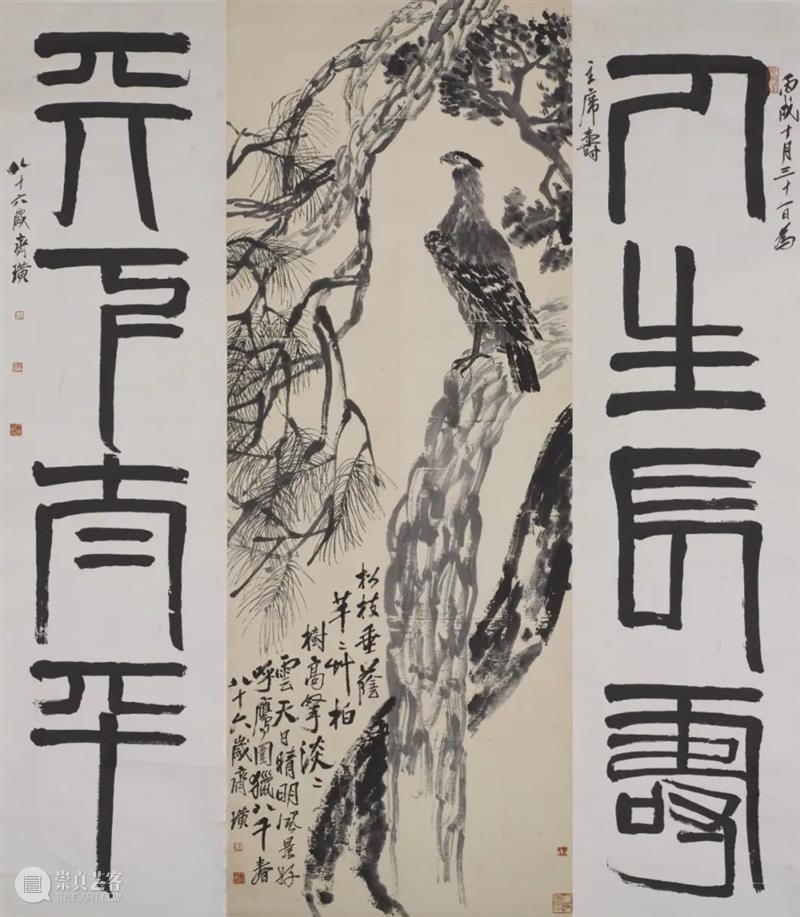 丙戌十月三十一日為
人生長壽
主席壽
松枝垂蔭
芊〻艸柏
樹高擎淡〻
雲天日晴明風景好
呼鷹圍獵八千春
八十六歲齊璜
天下太平
八十六歲齊璜
崇真艺客
WWW.TRUEART.COM